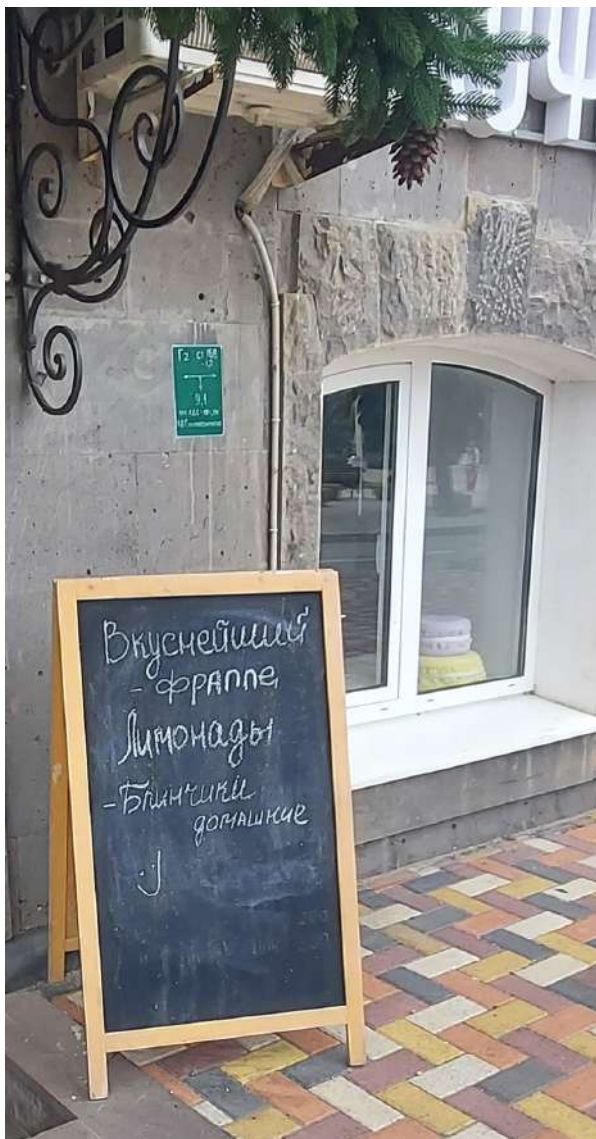 Г2
9,1
Вкуснейший
- фраппе,
Лимонады
- Блинчики
домашние
:)